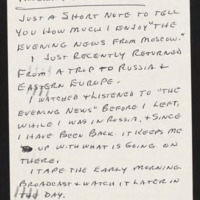 JUST A SHORT NOTE TO TELL
YOU HOW MUCH I ENJOY "THE
EVENING NEWS FROM MOSCOW."
I JUST RECENTLY RETURNED
FROM A TRIP TO RUSSIA &
EASTERN EUROPE.
I WATCHED & LISTENED TO "THE
EVENING NEWS" BEFORE I LEFT,
WHILE I WAS IN RUSSIA, & SINCE
I HAVE BEEN BACK. IT KEEPS ME
UP WITH WHAT IS GOING ON
THERE.
I TAPE THE EARLY MORNING
BROADCAST & WATCH IT LATER IN
DAY.